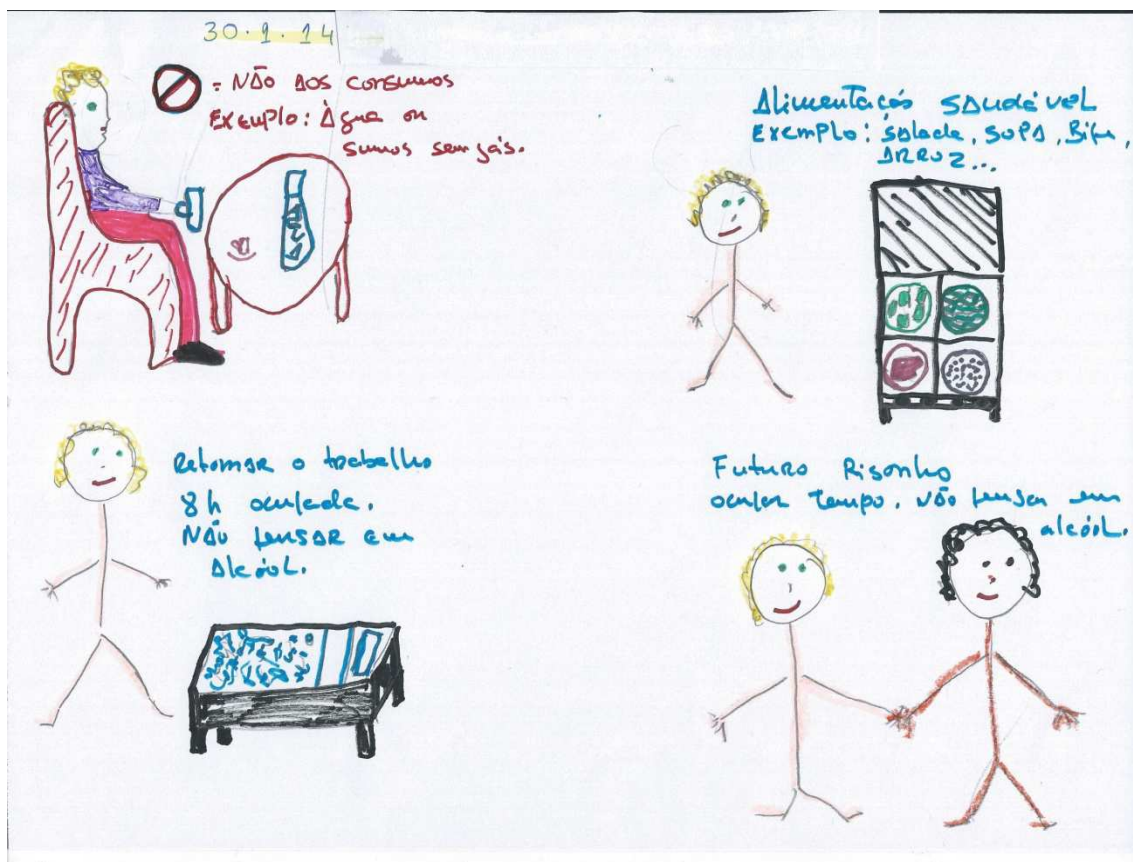 30.1.14
= NÃO AOS CONSUMOS
EXEMPLO: Água ou
SUMOS sem gás.
Alimentação SAUDÁVEL
EXEMPLO: salada, SOPA, Bife,
ARROZ...
Retomar o trabalho
8h ocupada.
NÃO pensar em
Alcóol.
Futuro Risonho
ocupar tempo. Não pensar em
alcóol.